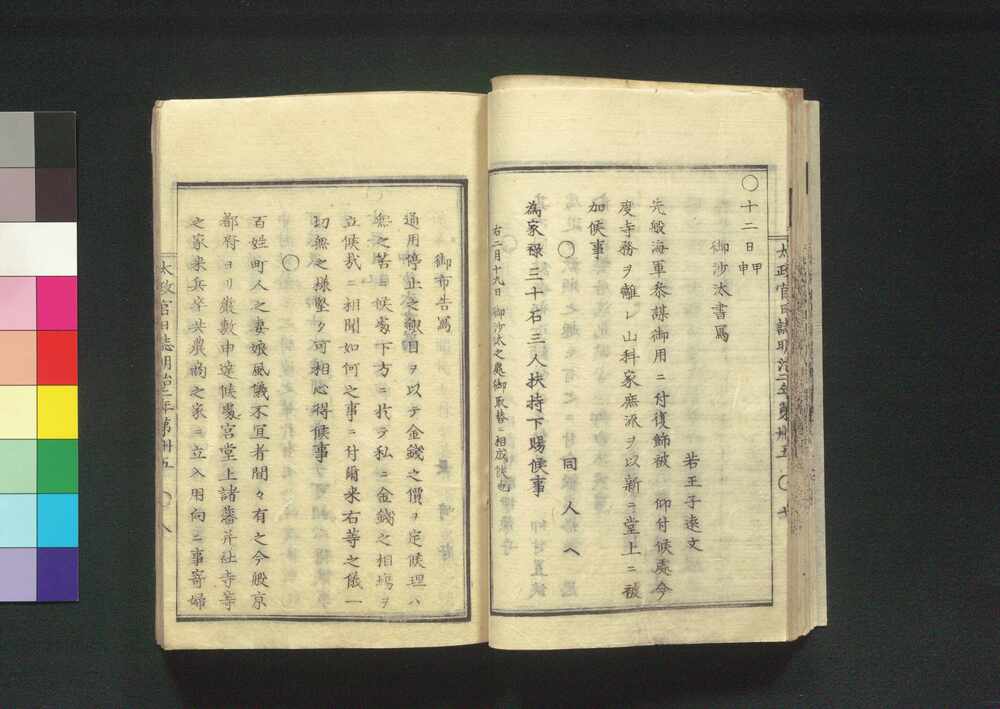 太政官日誌明治二年第卅五 〇 七
〇十二日甲申
御沙汰書写
若王子遠文
先般海軍参謀御用ニ付復飾被 仰付候処今
度寺務ヲ離レ山科家庶派ヲ以新ニ堂上ニ被
加候事
〇 同人へ
為家禄三十石三人扶持下賜候事
右二月十九日御沙汰之処御取替ニ相成候也
御布告写
通用停止之銀目ヲ以テ金銭之価ヲ定候理ハ
無之筈ニ候処下方ニ於テ私ニ金銭之相場ヲ
立候哉ニ相聞如何之事ニ付爾来右等之儀一
切無之様堅ク可相心得候事
〇
百姓町人之妻娘風儀不宜者間々有之今般京
都府ヨリ厳敷申達候処宮堂上諸藩并社寺等
之家来兵卒共農商之家ニ立入用向ニ事寄婦
太政官日誌明治二年第卅五 〇 八